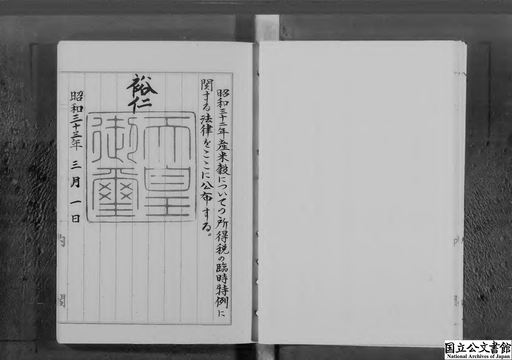 昭和三十二年産米穀についての所得税の臨時特例に
関する法律をここに公布する。
裕仁
天皇
御璽
昭和三十三年三月一日
国立公文書館
National Archives of Japan